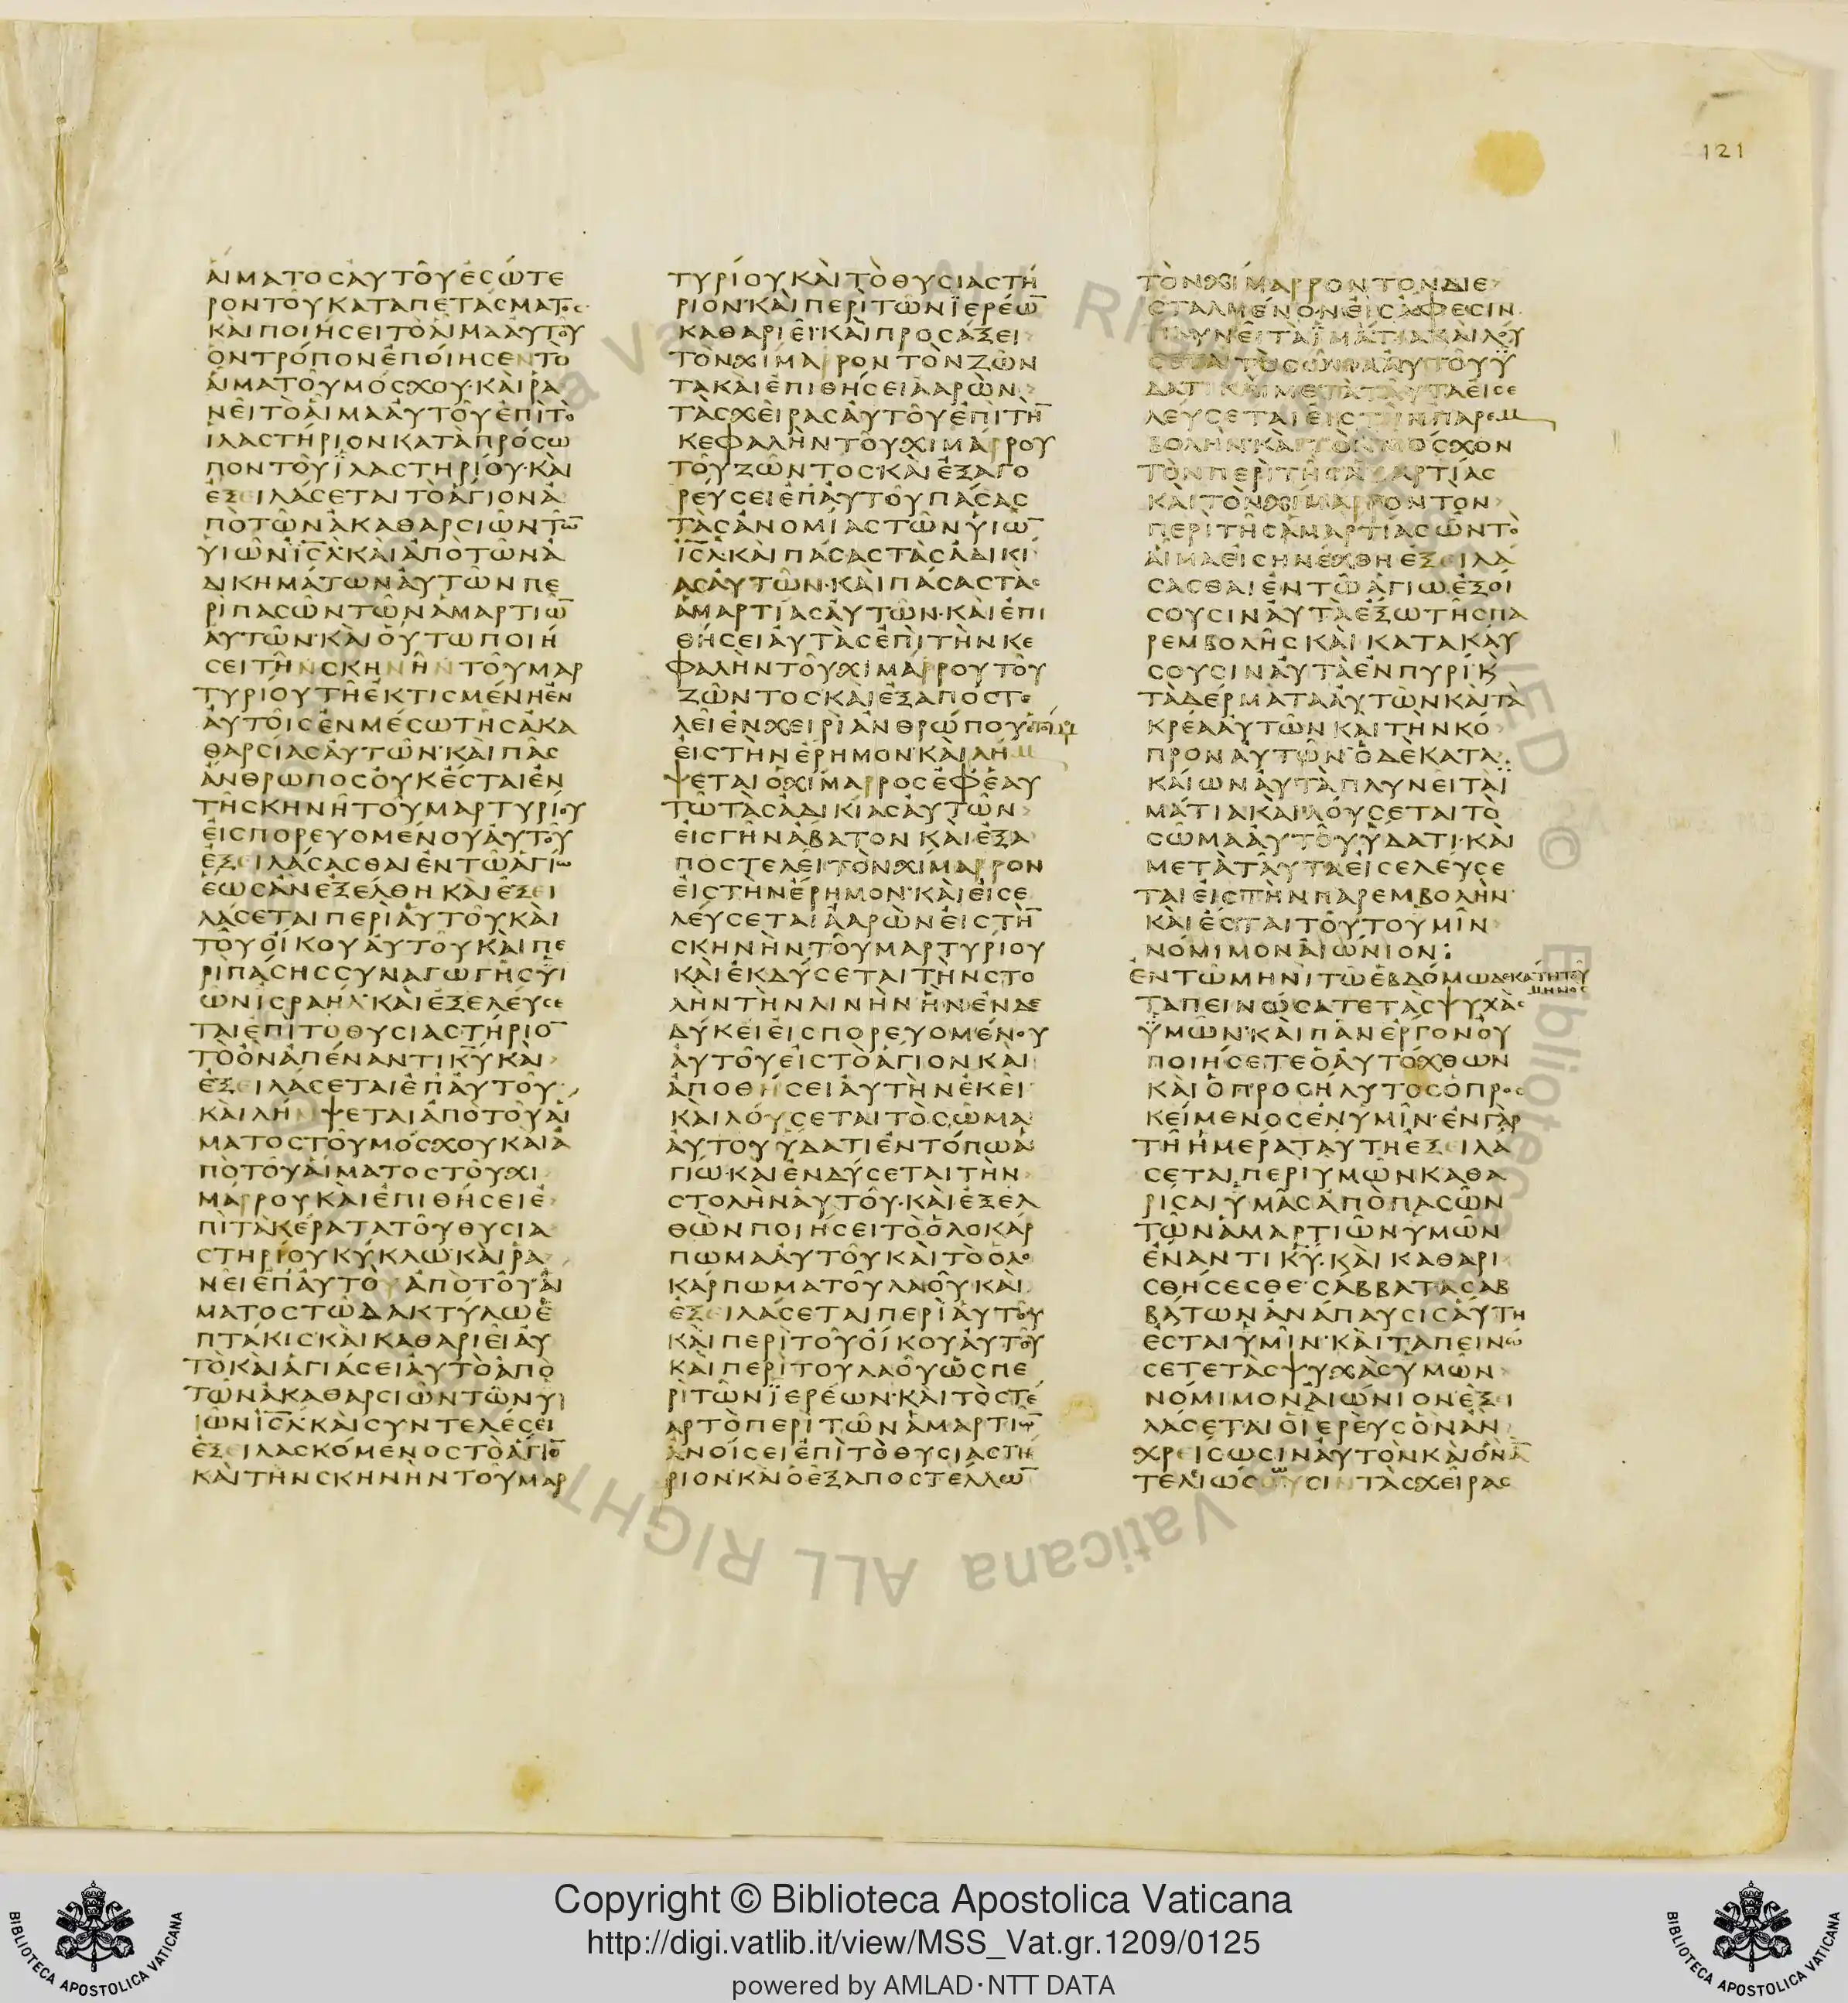 121
ΑΙΜΑΤΟϹΑΥΤΟΥΕϹΩΤΕ
ΡΟΝΤΟΥΚΑΤΑΠΕΤΑϹΜΑΤΟϹ·
ΚΑΙΠΟΙΗϹΕΙΤΟΑΙΜΑΑΥΤΟΥ
ΟΝΤΡΟΠΟΝΕΠΟΙΗϹΕΝΤΟ
ΑΙΜΑΤΟΥΜΟϹΧΟΥ·ΚΑΙΡΑ
ΝΕΙΤΟΑΙΜΑΑΥΤΟΥΕΠΙΤΟ
ΙΛΑϹΤΗΡΙΟΝΚΑΤΑΠΡΟϹΩ
ΠΟΝΤΟΥΪΛΑϹΤΗΡΙΟΥ·ΚΑΙ
ΕΞΕΙΛΑϹΕΤΑΙΤΟΑΓΙΟΝΑ
ΠΟΤΩΝΑΚΑΘΑΡϹΙΩΝΤΩ̅
ΥΙΩΝΙ̅Ϲ̅Λ̅ΚΑΙΑΠΟΤΩΝΑ
ΔΙΚΗΜΑΤΩΝΑΥΤΩΝΠΕ
ΡΙΠΑϹΩΝΤΩΝΑΜΑΡΤΙΩ̅
ΑΥΤΩΝ·ΚΑΙΟΥΤΩΠΟΙΗ
ϹΕΙΤΗΝϹΚΗΝΗΝΤΟΥΜΑΡ
ΤΥΡΙΟΥΤΗΕΚΤΙϹΜΕΝΗΕΝ
ΑΥΤΟΙϹΕΝΜΕϹΩΤΗϹΑΚΑ
ΘΑΡϹΙΑϹΑΥΤΩΝ·ΚΑΙΠΑϹ
ΑΝΘΡΩΠΟϹΟΥΚΕϹΤΑΙΕΝ
ΤΗϹΚΗΝΗΤΟΥΜΑΡΤΥΡΙΟΥ
ΕΙϹΠΟΡΕΥΟΜΕΝΟΥΑΥΤΟΥ
ΕΞΕΙΛΑϹΑϹΘΑΙΕΝΤΩΑΓΙΩ
ΕΩϹΑΝΕΞΕΛΘΗΚΑΙΕΞΕΙ
ΛΑϹΕΤΑΙΠΕΡΙΑΥΤΟΥΚΑΙ
ΤΟΥΟΙΚΟΥΑΥΤΟΥΚΑΙΠΕ
ΡΙΠΑϹΗϹϹΥΝΑΓΩΓΗϹΫΙ
ΩΝΙϹΡΑΗΛ·ΚΑΙΕΞΕΛΕΥϹΕ
ΤΑΙΕΠΙΤΟΘΥϹΙΑϹΤΗΡΙΟ̅
ΤΟΟΝΑΠΕΝΑΝΤΙΚ̅Υ̅ΚΑΙ
ΕΞΕΙΛΑϹΕΤΑΙΕΠΑΥΤΟΥ·
ΚΑΙΛΗΜΨΕΤΑΙΑΠΟΤΟΥΑΙ
ΜΑΤΟϹΤΟΥΜΟϹΧΟΥΚΑΙΑ
ΠΟΤΟΥΑΙΜΑΤΟϹΤΟΥΧΙ
ΜΑΡΡΟΥΚΑΙΕΠΙΘΗϹΕΙΕ
ΠΙΤΑΚΕΡΑΤΑΤΟΥΘΥϹΙΑ
ϹΤΗΡΙΟΥΚΥΚΛΩ·ΚΑΙΡΑ
ΝΕΙΕΠΑΥΤΟΥΑΠΟΤΟΥΑΙ
ΜΑΤΟϹΤΩΔΑΚΤΥΛΩΕ
ΠΤΑΚΙϹ·ΚΑΙΚΑΘΑΡΙΕΙΑΥ
ΤΟΚΑΙΑΓΙΑϹΕΙΑΥΤΟΑΠΟ
ΤΩΝΑΚΑΘΑΡϹΙΩΝΤΩΝΥ
ΙΩΝΙ̅Ϲ̅Λ̅·ΚΑΙϹΥΝΤΕΛΕϹΕΙ
ΕΞΕΙΛΑϹΚΟΜΕΝΟϹΤΟΑΓΙΟ̅
ΚΑΙΤΗΝϹΚΗΝΗΝΤΟΥΜΑΡ
ΤΥΡΙΟΥΚΑΙΤΟΘΥϹΙΑϹΤΗ
ΡΙΟΝ·ΚΑΙΠΕΡΙΤΩΝΪΕΡΕΩ̅
ΚΑΘΑΡΙΕΙ·ΚΑΙΠΡΟϹΑΞΕΙ
ΤΟΝΧΙΜΑΡΡΟΝΤΟΝΖΩΝ
ΤΑΚΑΙΕΠΙΘΗϹΕΙΑΑΡΩΝ
ΤΑϹΧΕΙΡΑϹΑΥΤΟΥΕΠΙΤΗ̅
ΚΕΦΑΛΗΝΤΟΥΧΙΜΑΡΡΟΥ
ΤΟΥΖΩΝΤΟϹ·ΚΑΙΕΞΑΓΟ
ΡΕΥϹΕΙΕΠΑΥΤΟΥΠΑϹΑϹ
ΤΑϹΑΝΟΜΙΑϹΤΩΝΥΙΩ̅
Ι̅Ϲ̅Λ̅·ΚΑΙΠΑϹΑϹΤΑϹΑΔΙΚΙ
ΑϹΑΥΤΩΝ·ΚΑΙΠΑϹΑϹΤΑϹ
ΑΜΑΡΤΙΑϹΑΥΤΩΝ·ΚΑΙΕΠΙ
ΘΗϹΕΙΑΥΤΑϹΕΠΙΤΗΝΚΕ
ΦΑΛΗΝΤΟΥΧΙΜΑΡΡΟΥΤΟΥ
ΖΩΝΤΟϹ·ΚΑΙΕΞΑΠΟϹΤΕ
ΛΕΙΕΝΧΕΙΡΙΑΝΘΡΩΠΟΥ
ΕΙϹΤΗΝΕΡΗΜΟΝ·ΚΑΙΛΗΜ
ΨΕΤΑΙΟΧΙΜΑΡΡΟϹΕΦΕΑΥ
ΤΩΤΑϹΑΔΙΚΙΑϹΑΥΤΩΝ
ΕΙϹΓΗΝΑΒΑΤΟΝΚΑΙΕΞΑ
ΠΟϹΤΕΛΕΙΤΟΝΧΙΜΑΡΡΟΝ
ΕΙϹΤΗΝΕΡΗΜΟΝ·ΚΑΙΕΙϹΕ
ΛΕΥϹΕΤΑΙΑΑΡΩΝΕΙϹΤΗ̅
ϹΚΗΝΗΝΤΟΥΜΑΡΤΥΡΙΟΥ
ΚΑΙΕΚΔΥϹΕΤΑΙΤΗΝϹΤΟ
ΛΗΝΤΗΝΛΙΝΗΝΗΝΕΝΔΕ
ΔΥΚΕΙΕΙϹΠΟΡΕΥΟΜΕΝΟΥ
ΑΥΤΟΥΕΙϹΤΟΑΓΙΟΝΚΑΙ
ΑΠΟΘΗϹΕΙΑΥΤΗΝΕΚΕΙ
ΚΑΙΛΟΥϹΕΤΑΙΤΟϹΩΜΑ
ΑΥΤΟΥΫΔΑΤΙΕΝΤΟΠΩΑ
ΓΙΩ·ΚΑΙΕΝΔΥϹΕΤΑΙΤΗΝ
ϹΤΟΛΗΝΑΥΤΟΥ·ΚΑΙΕΞΕΛ
ΘΩΝΠΟΙΗϹΕΙΤΟΟΛΟΚΑΡ
ΠΩΜΑΑΥΤΟΥΚΑΙΤΟΟΛΟ
ΚΑΡΠΩΜΑΤΟΥΛΑΟΥ·ΚΑΙ
ΕΞΕΙΛΑϹΕΤΑΙΠΕΡΙΑΥΤΟΥ
ΚΑΙΠΕΡΙΤΟΥΟΙΚΟΥΑΥΤΟΥ
ΚΑΙΠΕΡΙΤΟΥΛΑΟΥΩϹΠΕ
ΡΙΤΩΝΪΕΡΕΩΝ·ΚΑΙΤΟϹΤΕ
ΑΡΤΟΠΕΡΙΤΩΝΑΜΑΡΤΙΩ̅
ΑΝΟΙϹΕΙΕΠΙΤΟΘΥϹΙΑϹΤΗ
ΡΙΟΝ·ΚΑΙΟΕΞΑΠΟϹΤΕΛΛΩ̅
ΤΟΝΧΙΜΑΡΡΟΝΤΟΝΔΙΕ
ϹΤΑΛΜΕΝΟΝ·ΕΙϹΑΦΕϹΙΝ
ΠΛΥΝΕΙΤΑΪΜΑΤΙΑΚΑΙΛΟΥ
ϹΕΤΑΙΤΟϹΩΜΑΑΥΤΟΥΫ
ΔΑΤΙΚΑΙΜΕΤΑΤΑΥΤΑΕΙϹΕ
ΛΕΥϹΕΤΑΙΕΙϹΤΗΝΠΑΡΕΜ
ΒΟΛΗΝ·ΚΑΙΤΟΝΜΟϹΧΟΝ
ΤΟΝΠΕΡΙΤΗϹΑΜΑΡΤΙΑϹ
ΚΑΙΤΟΝΧΙΜΑΡΡΟΝΤΟΝ
ΠΕΡΙΤΗϹΑΜΑΡΤΙΑϹΩΝΤΟ
ΑΙΜΑΕΙϹΗΝΕΧΘΗΕΞΕΙΛΑ
ϹΑϹΘΑΙΕΝΤΩΑΓΙΩΕΞΟΙ
ϹΟΥϹΙΝΑΥΤΑΕΞΩΤΗϹΠΑ
ΡΕΜΒΟΛΗϹΚΑΙΚΑΤΑΚΑΥ
ϹΟΥϹΙΝΑΥΤΑΕΝΠΥΡΙ·Ϗ
ΤΑΔΕΡΜΑΤΑΑΥΤΩΝΚΑΙΤΑ
ΚΡΕΑΑΥΤΩΝΚΑΙΤΗΝΚΟ
ΠΡΟΝΑΥΤΩΝ·ΟΔΕΚΑΤΑ
ΚΑΙΩΝΑΥΤΑΠΛΥΝΕΙΤΑΪ
ΜΑΤΙΑΚΑΙΛΟΥϹΕΤΑΙΤΟ
ϹΩΜΑΑΥΤΟΥΫΔΑΤΙ·ΚΑΙ
ΜΕΤΑΤΑΥΤΑΕΙϹΕΛΕΥϹΕ
ΤΑΙΕΙϹΤΗΝΠΑΡΕΜΒΟΛΗΝ·
ΚΑΙΕϹΤΑΙΤΟΥΤΟΥΜΙΝ
ΝΟΜΙΜΟΝΑΙΩΝΙΟΝ:
ΕΝΤΩΜΗΝΙΤΩΕΒΔΟΜΩΔΕΚΑΤΗΤΟΥ
ΜΗΝΟϹ
ΤΑΠΕΙΝΩϹΑΤΕΤΑϹΨΥΧΑϹ
ΫΜΩΝ·ΚΑΙΠΑΝΕΡΓΟΝΟΥ
ΠΟΙΗϹΕΤΕΟΑΥΤΟΧΘΩΝ
ΚΑΙΟΠΡΟϹΗΛΥΤΟϹΟΠΡΟϹ
ΚΕΙΜΕΝΟϹΕΝΥΜΙΝ·ΕΝΓΑΡ
ΤΗΗΜΕΡΑΤΑΥΤΗΕΞΕΙΛΑ
ϹΕΤΑΙΠΕΡΙΥΜΩΝΚΑΘΑ
ΡΙϹΑΙΫΜΑϹΑΠΟΠΑϹΩΝ
ΤΩΝΑΜΑΡΤΙΩΝΥΜΩΝ
ΕΝΑΝΤΙΚ̅Υ̅·ΚΑΙΚΑΘΑΡΙ
ϹΘΗϹΕϹΘΕ·ϹΑΒΒΑΤΑϹΑΒ
ΒΑΤΩΝΑΝΑΠΑΥϹΙϹΑΥΤΗ
ΕϹΤΑΙΥΜΙΝ·ΚΑΙΤΑΠΕΙΝΩ
ϹΕΤΕΤΑϹΨΥΧΑϹΥΜΩΝ
ΝΟΜΙΜΟΝΑΙΩΝΙΟΝΕΞΕΙ
ΛΑϹΕΤΑΙΟΙΕΡΕΥϹΟΝΑΝ
ΧΡΕΙϹΩϹΙΝΑΥΤΟΝΚΑΙΟΝΑ̅
ΤΕΛΙΩϹΟΥϹΙΝΤΑϹΧΕΙΡΑϹ
Biblioteca Apostolica Vaticana ALL RIGHTS RESERVED ©
Copyright © Biblioteca Apostolica Vaticana
http://digi.vatlib.it/view/MSS_Vat.gr.1209/0125
powered by AMLAD·NTT DATA
BIBLIOTECA APOSTOLICA VATICANA
BIBLIOTECA APOSTOLICA VATICANA